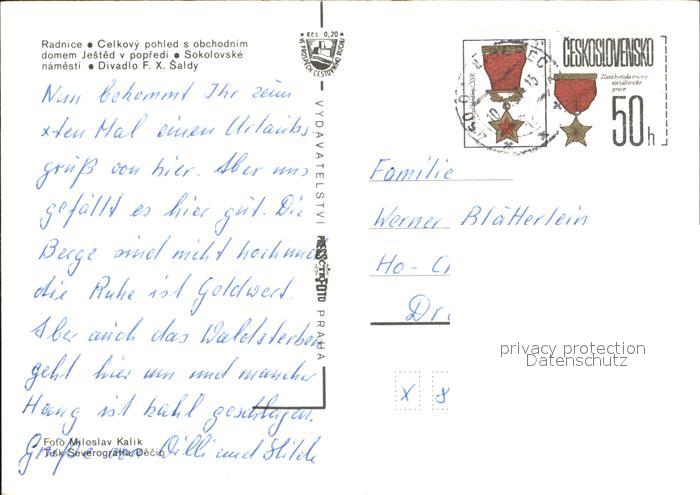 Radnice ● Celkový pohled s obchodním
domem Ještěd v popředí ● Sokolovské
náměstí ● Divadlo F. X. Šaldy
Kčs 0,20
VE PROSPĚCH CESTOVNÍHO RUCHU
ČESKOSLOVENSKO
Zlatá hvězda hrdiny
socialistické
práce
50h
Nun bekommt Ihr zum
xten Mal einen Urlaubs-
gruß von hier. Aber uns
gefällt es hier gut. Die
Berge sind nicht hoch und
die Ruhe ist Goldwert.
Aber auch das Waldsterben
geht hier um und mancher
Hang ist kahl geschlagen.
Grüße von Willi und Hilde
VYDAVATELSTVÍ PRESSFOTO PRAHA
Familie
Werner Blätterlein
Ho-
Dr
x 8
privacy protection
Datenschutz
Foto Miloslav Kalik
Tisk Severografia Děčín